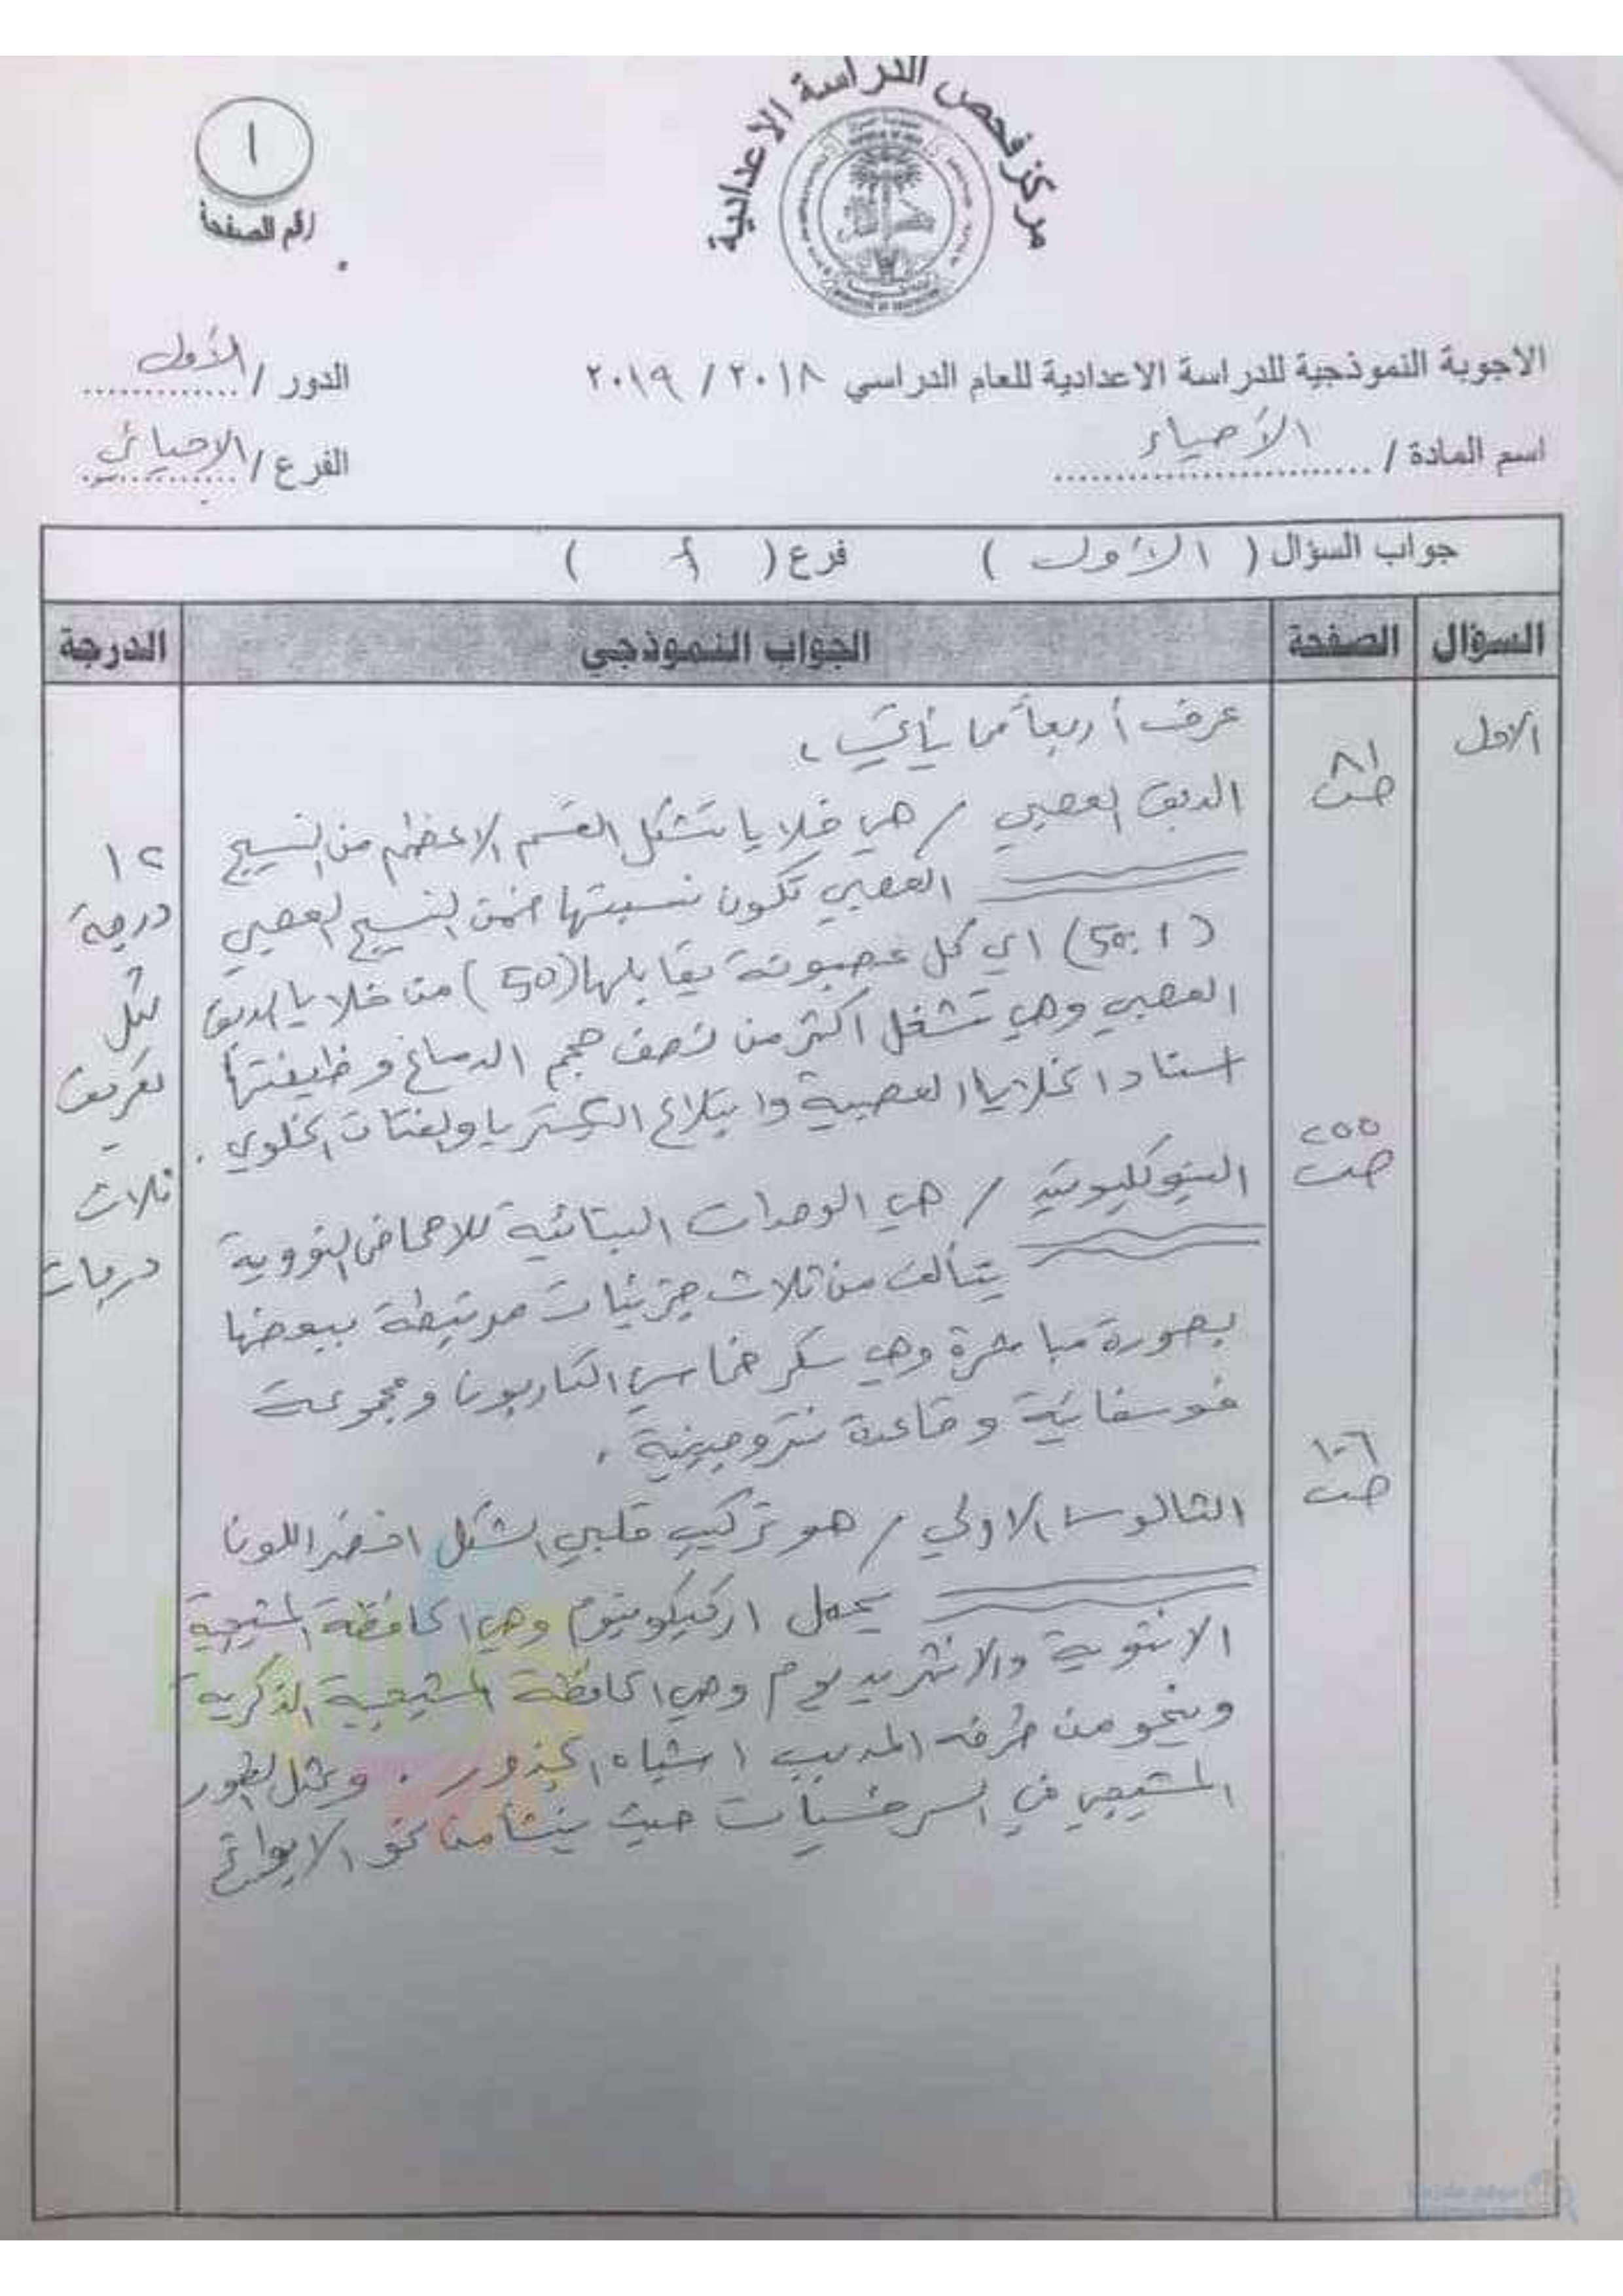 مركز فحص الدراسة الاعدادية
١
رقم الصفحة
الاجوبة النموذجية للدراسة الاعدادية للعام الدراسي ٢٠١٨ / ٢٠١٩
الدور / الأول
اسم المادة / الأحياء
الفرع / الاحيائي
جواب السؤال ( الأول ) فرع ( أ )
السؤال الصفحة الجواب النموذجي الدرجة
الاول
عرف أربعاً مما يأتي
ص ٨١
الدبق العصبي / هي خلايا تشكل القسم الاعظم من النسيج
العصبي تكون نسبتها ضمن النسيج العصبي
(50:1) اي كل عصبونة يقابلها (50) من خلايا الدبق
العصبي وهي تشغل اكثر من نصف حجم الدماغ وظيفتها
اسناد الخلايا العصبية وابتلاع البكتريا والفتات الخلوي .
ص ٢٥٥
النيوكليوتيد / هي الوحدات البنائية للاحماض النووية
يتألف من ثلاث جزيئات مرتبطة ببعضها
بصورة مباشرة وهي سكر خماسي الكاربون ومجموعة
فوسفاتية وقاعدة نتروجينية .
ص ١٠٦
الثالوس الاولي / هو تركيب قلبي الشكل اخضر اللون
يحمل اركيكونيوم وهي الحافظة المشيجية
الانثوية والانثريديوم وهي الحافظة المشيجية الذكرية
وينمو من طرفه المدبب اشباه الجذور . ويمثل الطور
المشيجي في السرخسيات حيث ينشأ من نمو الابواغ
١٢
درجة
لكل
تعريف
ثلاث
درجات